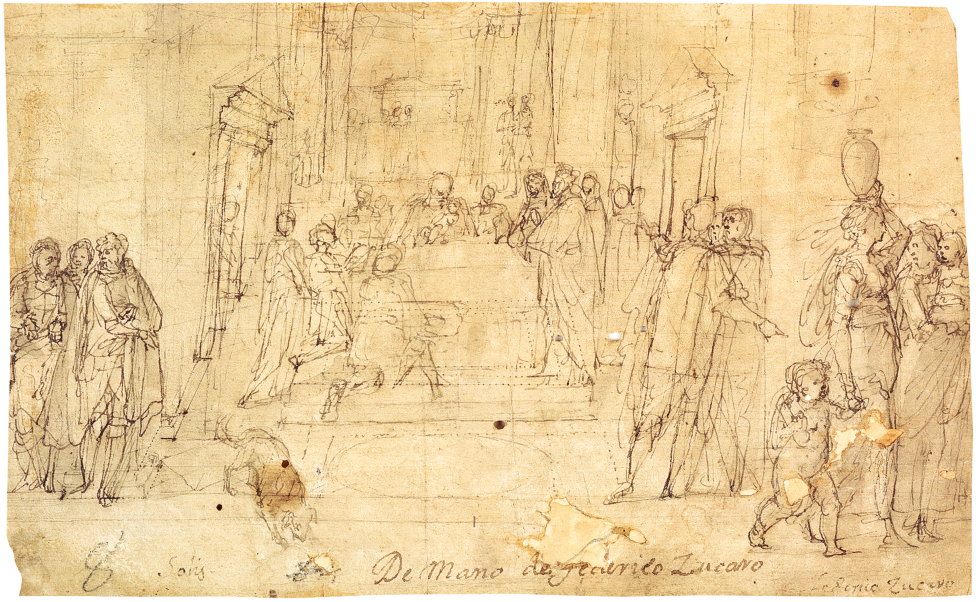 8 Solis
De Mano de Federico Zucaro
Federic Zucaro